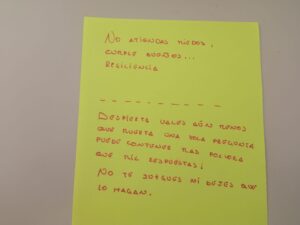 No atiendas miedos,
cumple sueños...
Resiliencia
Despierta vales aún menos
que muerta una sola pregunta
puede contener más pólvora
que mil respuestas;
No te juzgues ni dejes que
lo hagan.